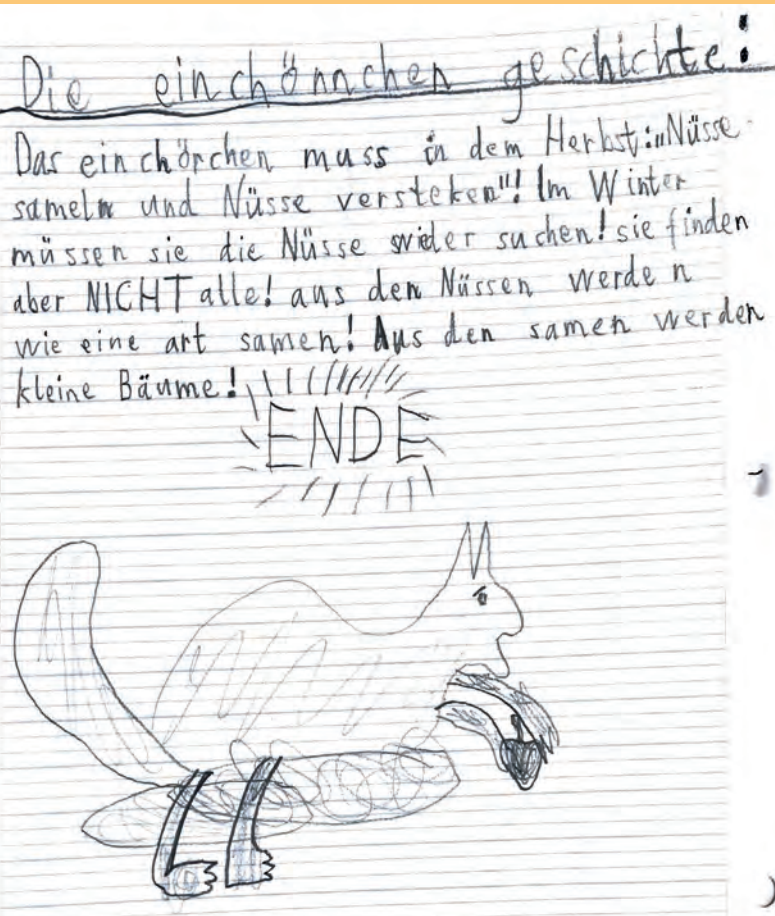 Die einchönnchen geschichte:
Das einchörchen muss in dem Herbst:„Nüsse
sameln und Nüsse versteken"! Im Winter
müssen sie die Nüsse wider suchen! sie finden
aber NICHT alle! aus den Nüssen werden
wie eine art samen! Aus den samen werden
kleine Bäume!
ENDE